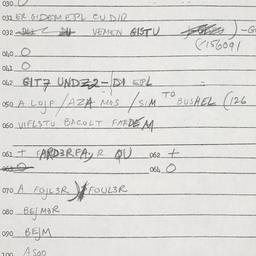 030
031 ER GIDEMEPL CU DIP
032 VEMEN GISTU
(-156091
040 O
041 O
042 GIT7 UNDZ2-DI EPL
050 A LOJF / AZA MOS / SIM TO BUSHEL (126
060 VIFLSTU BACOLT FARDEM
061 + FARD3RFA, R QU 062 +
063 064 O
070 A FOJL3R FOUL3R
080 BEJM3R
090 BEJM
100 ASOO